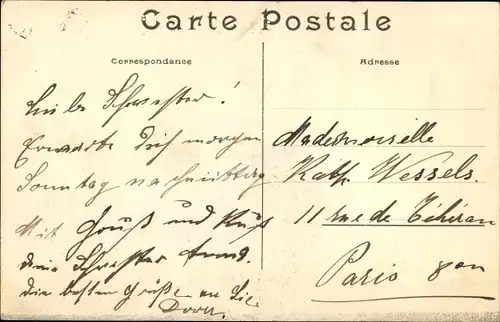 Carte Postale
Correspondance
Adresse
Liebe Schwester!
Erwarte dich morgen
Sonntag nachmittag
Mit Gruß und Kuß
deine Schwester
die besten Grüße an Sie
Dora.
Mademoiselle
Kath. Wessels.
11 rue de Téhéran
Paris 8en